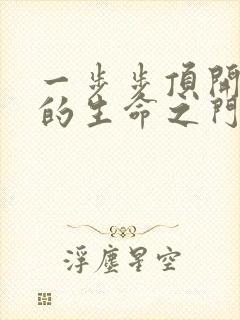 一步步頂開
的生命之門
浮塵星空